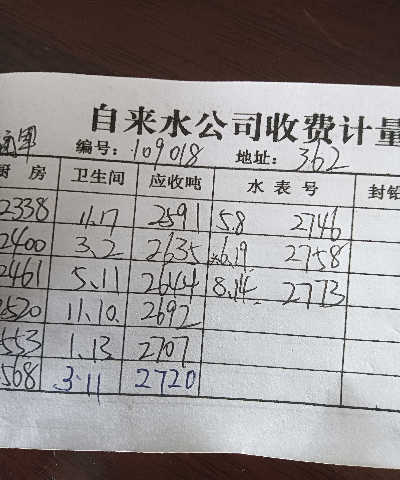 自来水公司收费计量
军 编号: 109018 地址: 362
厨房 卫生间 应收吨 水表号 封铅
2338 11.17 2591 5.8 2746
2400 3.2 2635 6.19 2758
2461 5.11 2644 8.14. 2773
2520 11.10. 2692
2553 1.13 2707
2568 3.11 2720